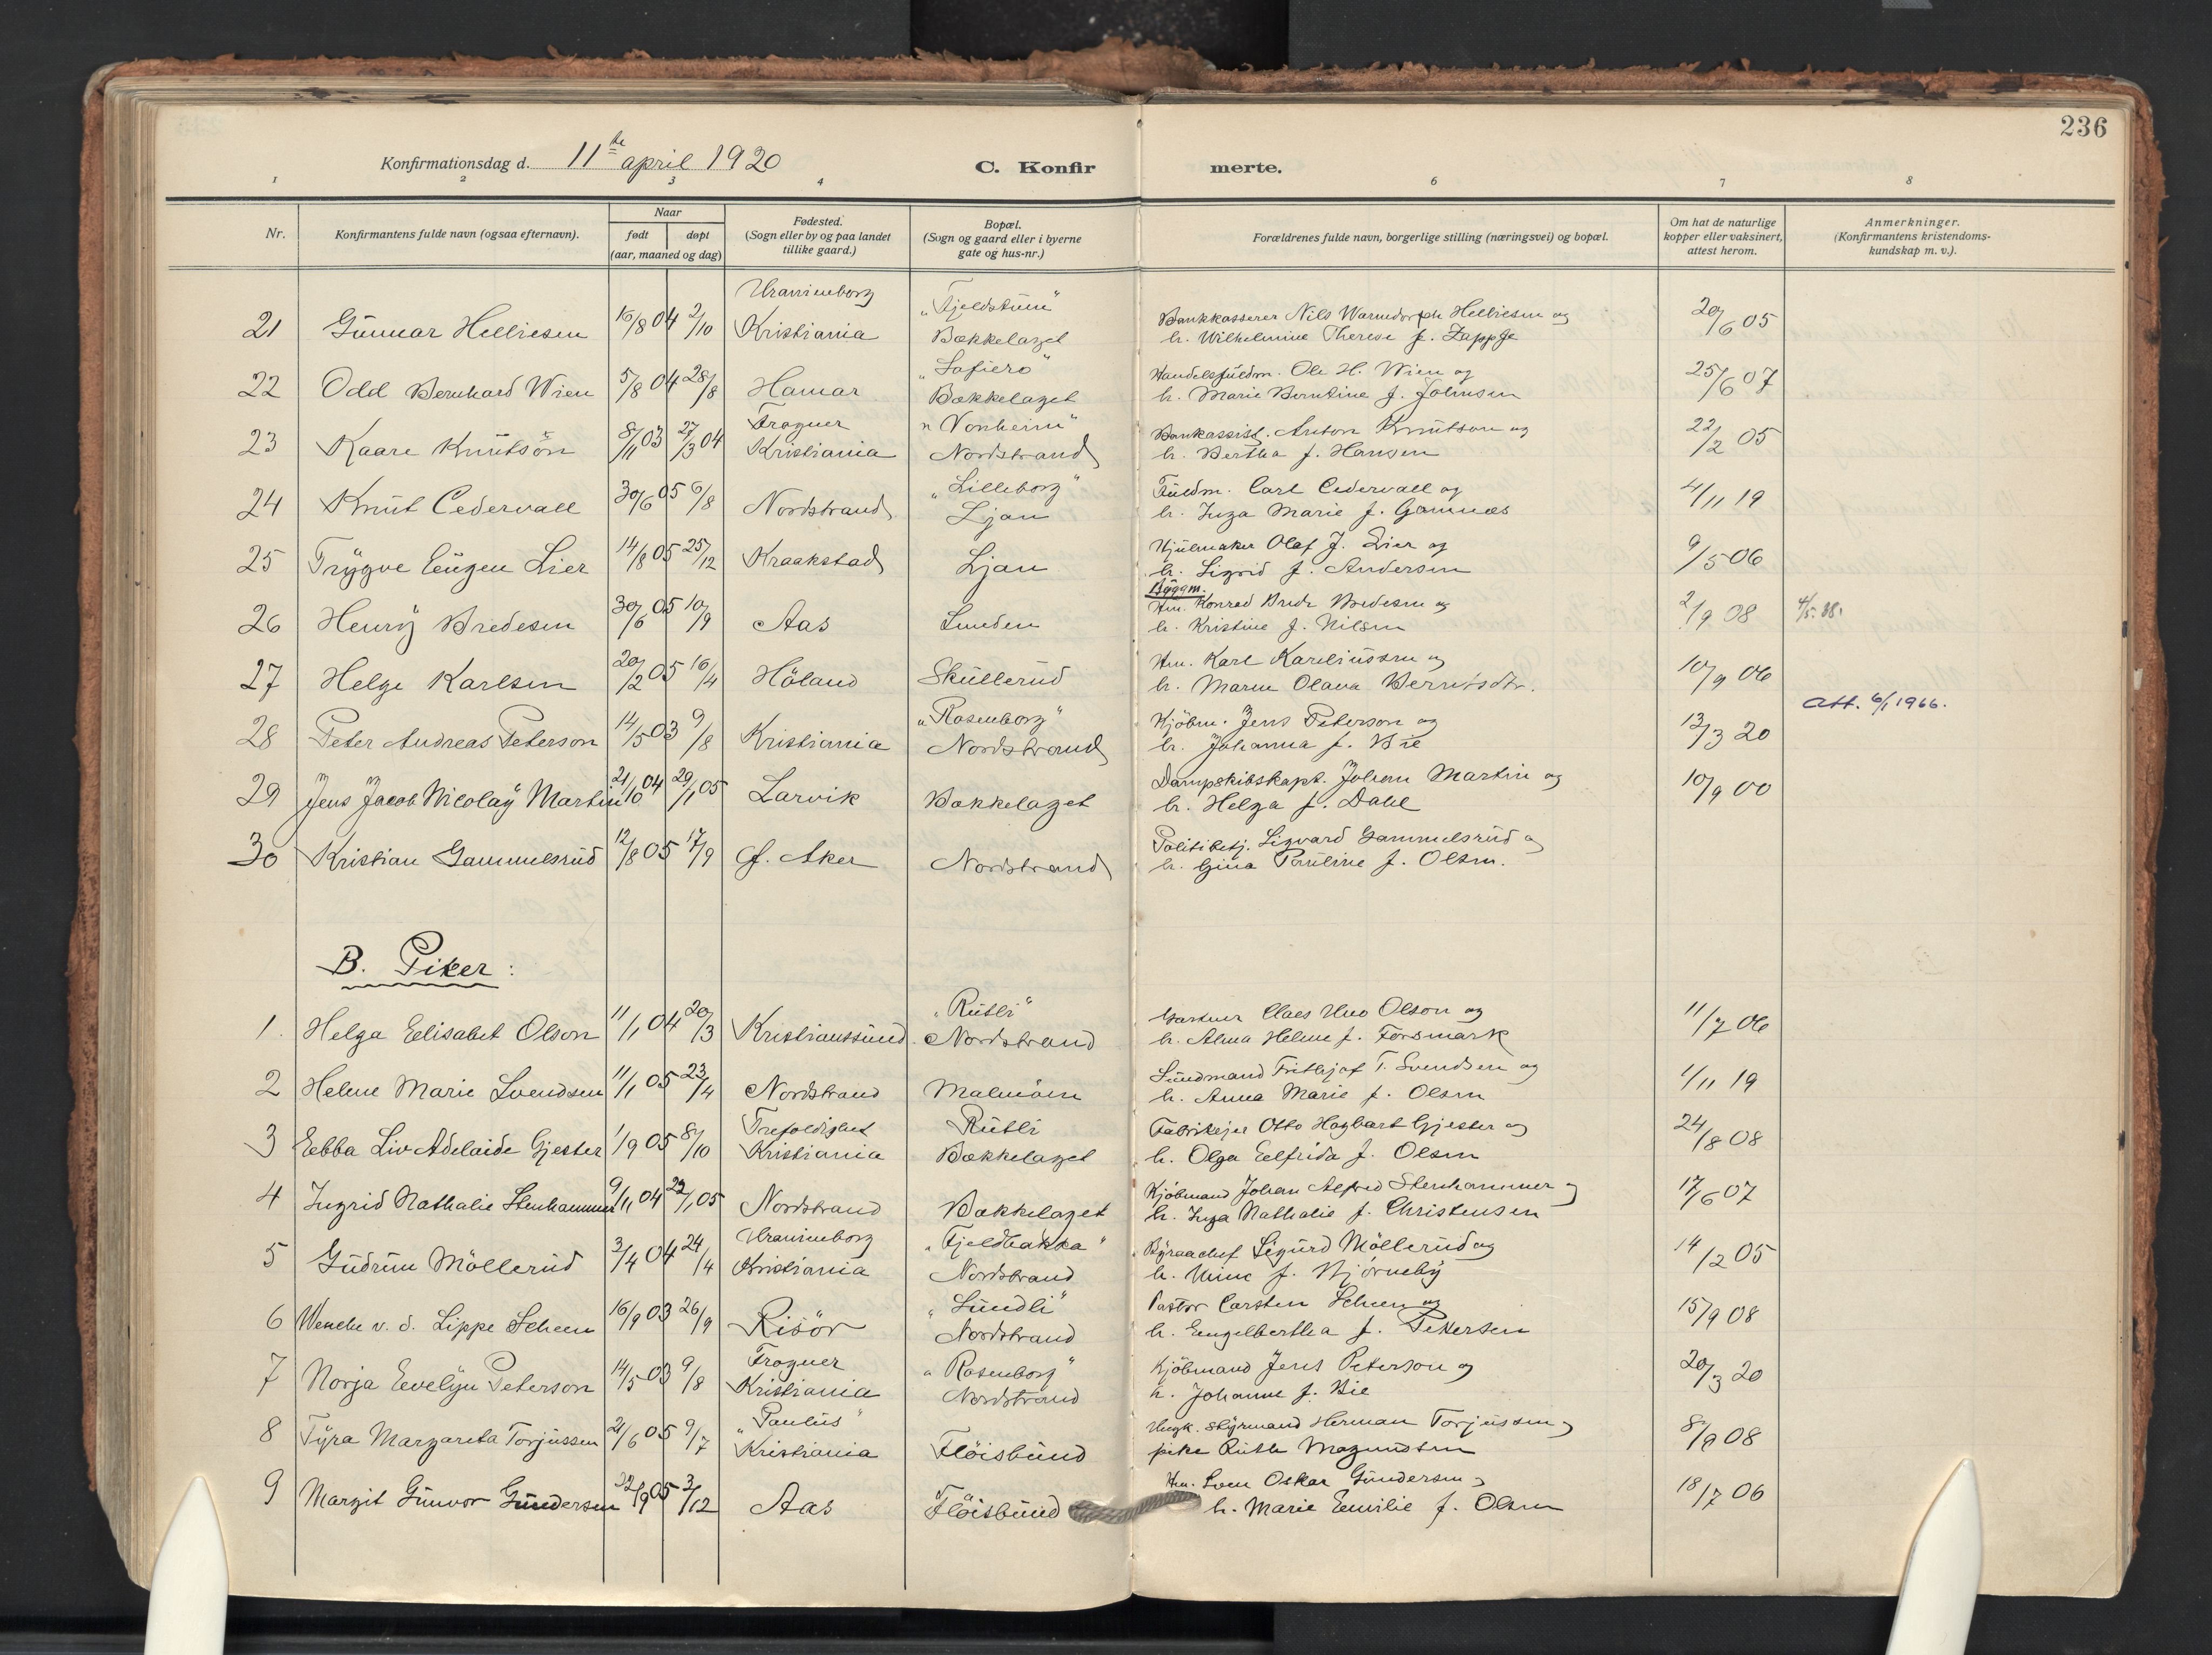 236
Konfirmationsdag d. 11te april 1920
C. Konfirmerte.
1 2 3 4 6 7 8
Nr.
Konfirmantens fulde navn (ogsaa efternavn).
Naar
født døpt
(aar, maaned og dag)
Fødested.
(Sogn eller by og paa landet
tillike gaard.)
Bopæl.
(Sogn og gaard eller i byerne
gate og hus-nr.)
Forældrenes fulde navn, borgerlige stilling (næringsvei) og bopæl.
Om hat de naturlige
kopper eller vaksinert,
attest herom.
Anmerkninger.
(Konfirmantens kristendoms-
kundskap m. v.).
Uranienborg "Fjeldstuen" Bankkasserer Nils Helliesen og
21 Gunnar Helliesen 16/8 04 2/10 Kristiania Bækkelaget h. Wilhelmine Therese f. Zappfe 20/6 05
"Sofiero" Handelsfuldm. Ole H. Wien og
22 Odd Bernhard Wien 5/8 04 28/8 Hamar Bækkelaget h. Marie Berntine f. Johnsen 25/6 07
Frogner "Vonheim" Bankassist. Anton Knutson og
23 Kaare Knutsön 8/11 03 27/3 04 Kristiania Nordstrand h. Bertha f. Hansen 22/2 05
"Lilleborg" Fuldm. Carl Cedervall og
24 Knut Cedervall 30/6 05 6/8 Nordstrand Ljan h. Inga Marie f. Gamnæs 4/11 19
Hjulmaker Olaf J. Lier og
25 Trygve Eugen Lier 14/8 05 25/12 Kraakstad Ljan h. Sigrid f. Andersen 9/5 06
Byggm.
Hm. Konrad Bredesen og
26 Henry Bredesen 30/6 05 10/9 Aas Lunden h. Kristine f. Nilsen 2/9 08 4/5.38.
Hm. Karl Kareliussen og
27 Helge Karlsen 20/2 05 16/4 Höland Skullerud h. Maren Olava Berntsdtr. 10/9 06
Att. 6/1 1966.
"Rosenborg" Kjöbm. Jens Peterson og
28 Peter Andreas Peterson 14/5 03 9/8 Kristiania Nordstrand h. Johanna f. Bie 13/3 20
Dampskibskapt. Johan Martin og
29 Jens Jacob Nicolay Martin 21/10 04 29/1 05 Larvik Bækkelaget h. Helga f. Dahl 10/9 00
Politibetj. Sigvard Gammelsrud og
30 Kristian Gammelsrud 12/8 05 17/9 Gl. Aker Nordstrand h. Gina Pauline f. Olsen.
B. Piker:
"Rütli" Gartner Claes Uno Olson og
1. Helga Elisabet Olson 11/1 04 20/3 Kristianssund Nordstrand h. Alma Helene f. Forsmark 11/7 06
Sundmand Frithjof T. Svendsen og
2 Helene Marie Svendsen 11/1 05 23/4 Nordstrand Malmöen h. Anna Marie f. Olsen 4/11 19
Trefoldighet Rütli Fabrikejer Otto Hagbart Gjester og
3 Ebba Liv Adelaide Gjester 1/9 05 8/10 Kristiania Bækkelaget h. Olga Elfrida f. Olsen 24/8 08
Kjöbmand Johan Alfred Stenhammer og
4 Ingrid Nathalie Stenhammer 9/11 04 22/1 05 Nordstrand Bækkelaget h. Inga Nathalie f. Christensen 17/6 07
Uranienborg "Fjeldbakka" Byraachef Sigurd Möllerud og
5 Gudrun Möllerud 3/4 04 24/4 Kristiania Nordstrand h. f. Bjørneby 14/2 05
"Lundli" Pastor Carsten Scheen og
6 Wenche v. d. Lippe Scheen 16/9 03 26/9 Risör Nordstrand h. Engelbertha f. Petersen 15/9 08
Frogner "Rosenborg" Kjöbmand Jens Peterson og
7 Norja Evelyn Peterson 14/5 03 9/8 Kristiania Nordstrand h. Johanne f. Bie 20/3 20
"Paulus" Ungk. Styrmand Herman Torjussen og
8 Tyra Margareta Torjussen 21/6 05 9/7 Kristiania Fløisbund pike Ruth Magnundsen 8/9 08
Hm. Sven Oskar Gundersen og
9 Margit Gunvor Gundersen 22/9 05 3/12 Aas Fløisbund h. Marie Emilie f. Olsen 18/7 06